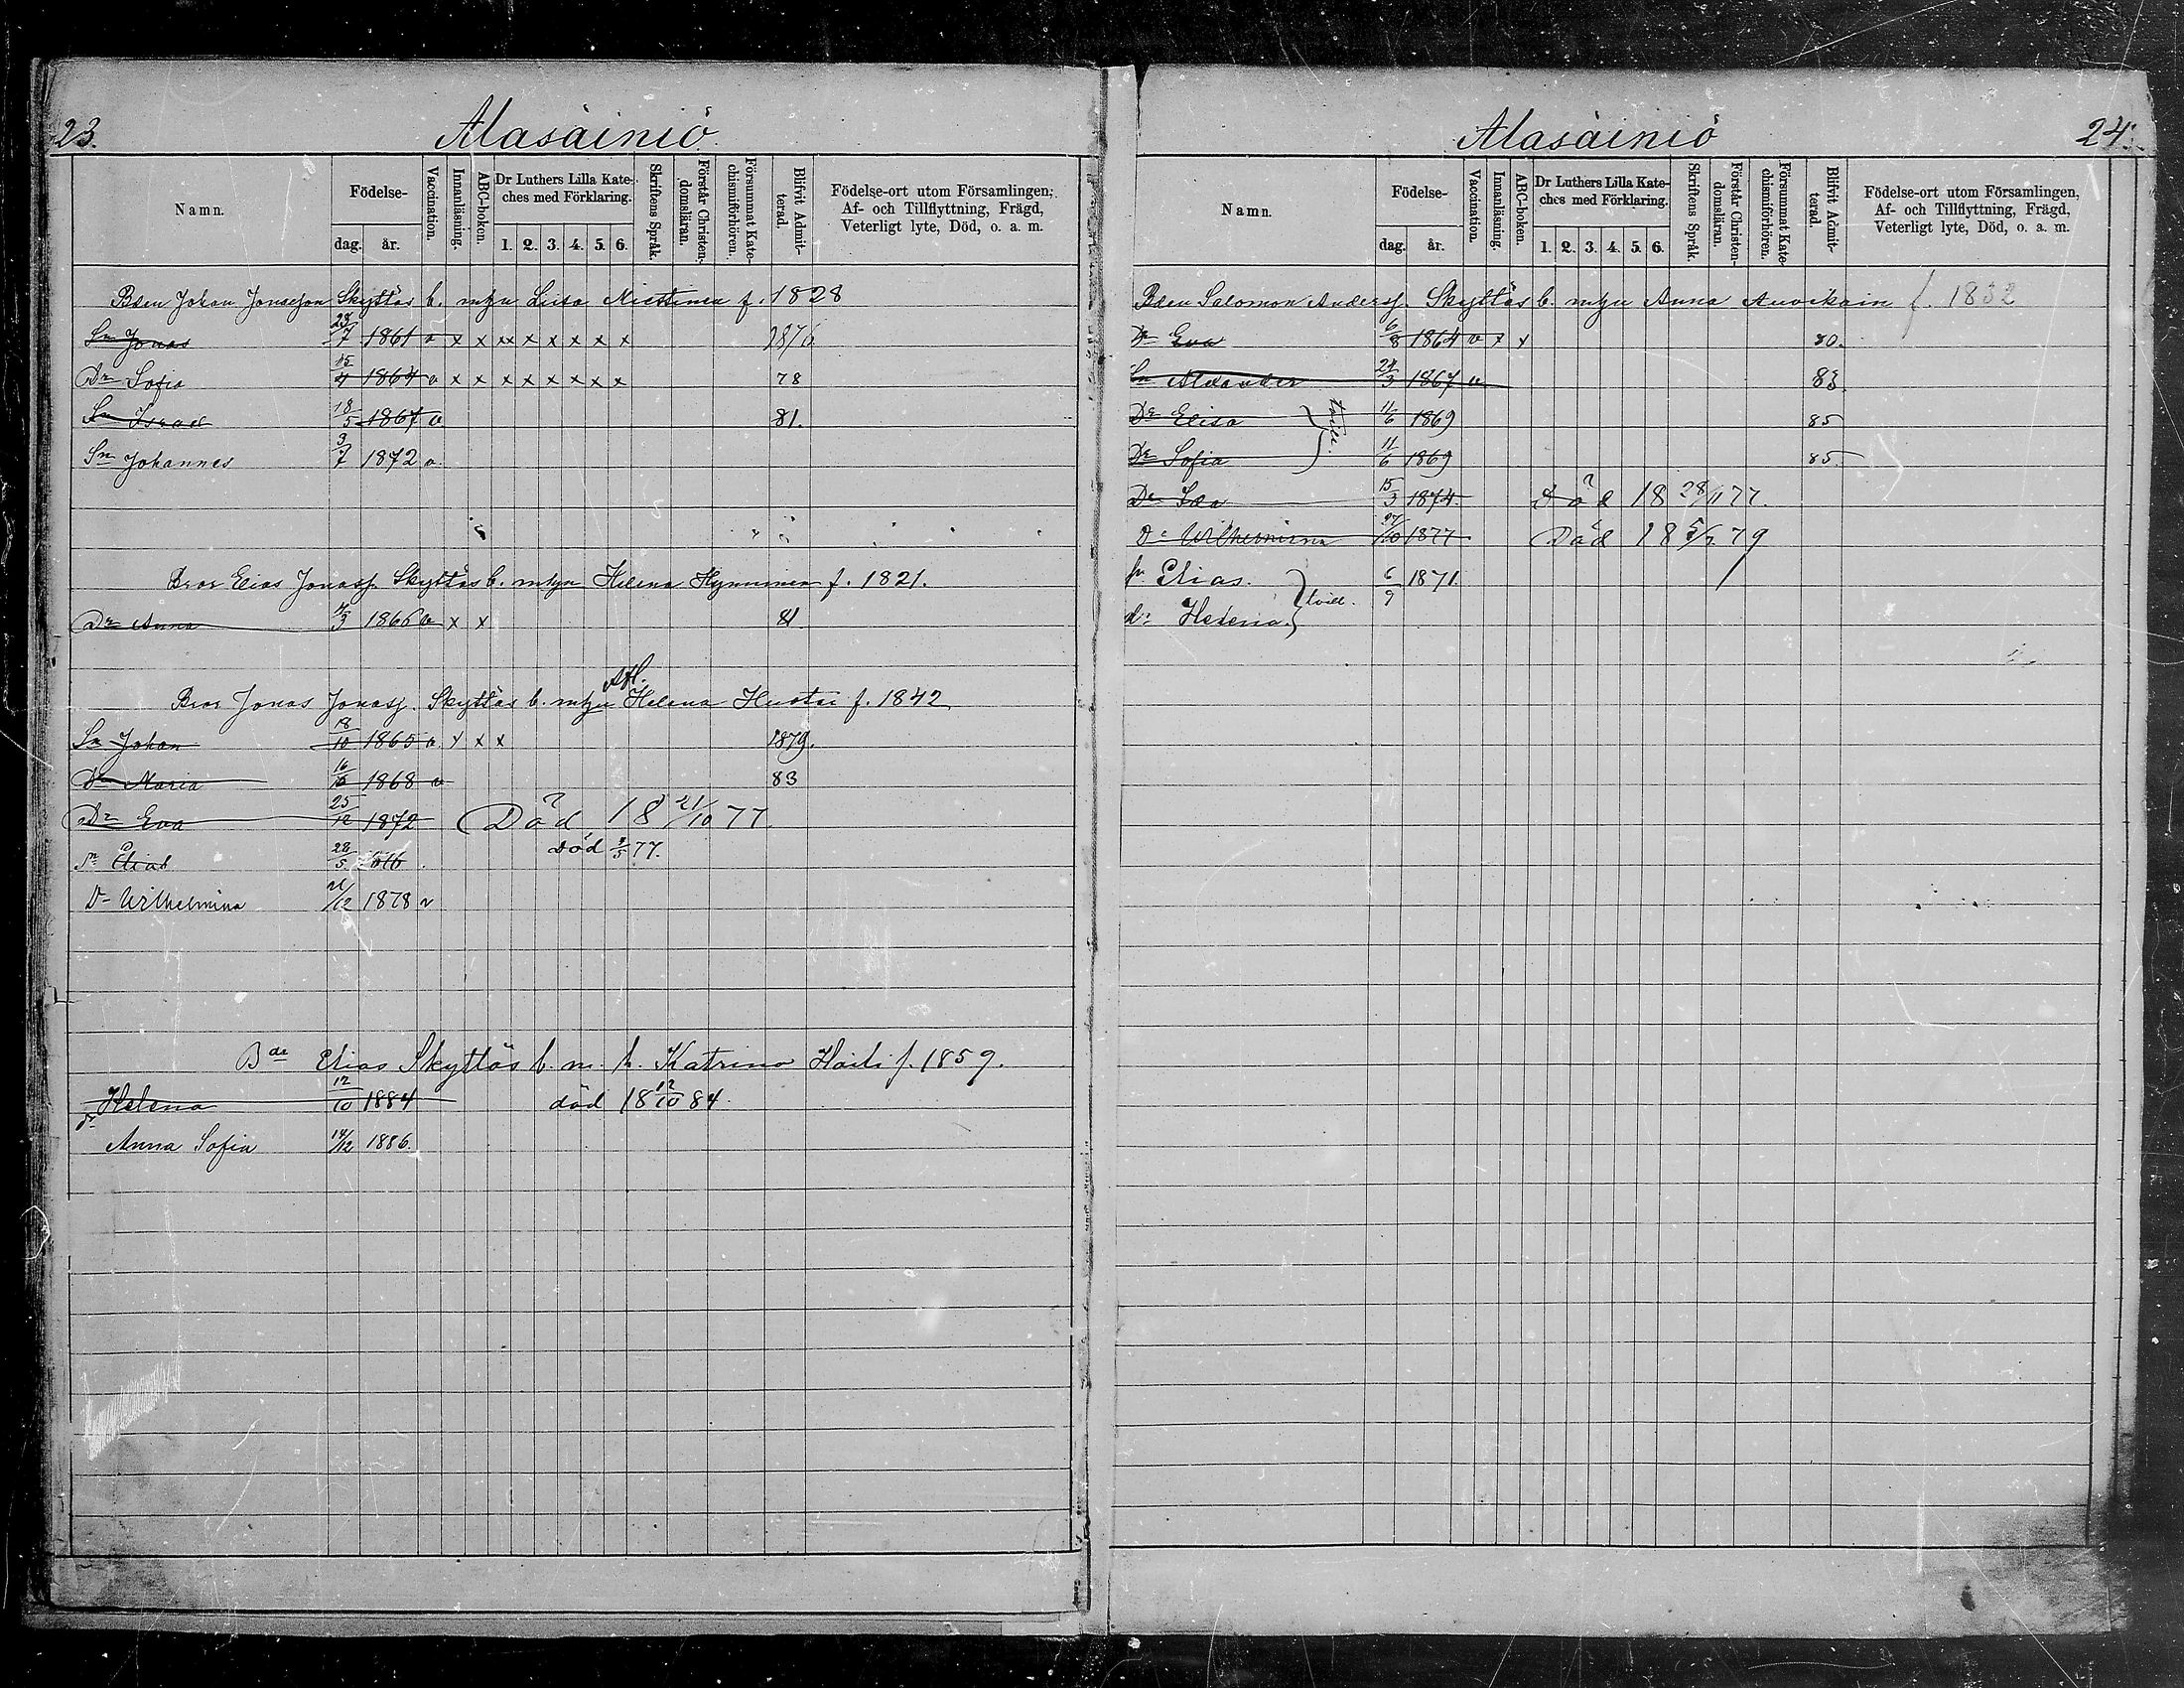 23.
Alasäiniö
Namn.
Födelse-
dag.
år.
Vaccination.
Innanläsning.
ABC-boken.
Dr Luthers Lilla Kate-
ches med Förklaring.
1. 2. 3. 4. 5. 6.
Skriftens Språk.
Förstår Christen-
domsläran.
Försummat Kate-
chismiförhören.
Blifvit Admit-
terad.
Födelse-ort utom Församlingen,
Af- och Tillflyttning, Frägd,
Veterligt lyte, Död, o. a. m.
Bden Johan Jonsson Skyttäs b. m hu Luisa Miettinen f. 1828
Sn Jonas 28/7 1861 v x x xx x x x x x 1876
Dr Sofia 15/4 1864 v x x x x x x x x 78
Sn Israel 18/5 1867 v 81.
Sn Johannes 3/7 1872 v.
Bror Elias Jonass. Skyttäs b. m hu Helena Hynninen f. 1821.
Dr Anna 4/3 1866 v x x 81
Afl.
Bror Jonas Jonass. Skyttäs b. m hu Helena f. 1842
Sn Johan 18/10 1865 v. x x x 1879.
Dr Maria 1868 v 83
Dr Eva 25/12 1872 Död 18 21/10 77
Sn Eliab 28/5 Död 3/5 77.
Dr Wilhelmina 21/12 1878 v
Bde Elias Skyttäs b. m. h. Katrina f. 1859.
Helena 12/10 1884 död 18 12/10 84.
dr
Anna Sofia 14/12 1886
24.
Alasäiniö
Namn.
Födelse-
dag.
år.
Vaccination.
Innanläsning.
ABC-boken.
Dr Luthers Lilla Kate-
ches med Förklaring.
1. 2. 3. 4. 5. 6.
Skriftens Språk.
Förstår Christen-
domsläran.
Försummat Kate-
chismiförhören.
Blifvit Admit-
terad.
Födelse-ort utom Församlingen,
Af- och Tillflyttning, Frägd,
Veterligt lyte, Död, o. a. m.
Bden Salomon Anderss. Skyttäs b. m hu Anna Auvikain f. 1832
Dr Eva 6/8 1864 v x x 80.
Sn Alexander 24/3 1867 v 83.
Dr Elisa tvill. 11/6 1869 85
Dr Sofia 11/6 1869 85.
Dr Ida 15/3 1874. Död 18 28/11 77.
Dr Wilhelmina 27/10 1877 Död 18 5/7 79
sn Elias. 6/9 1871.
tvill.
dr Helena.